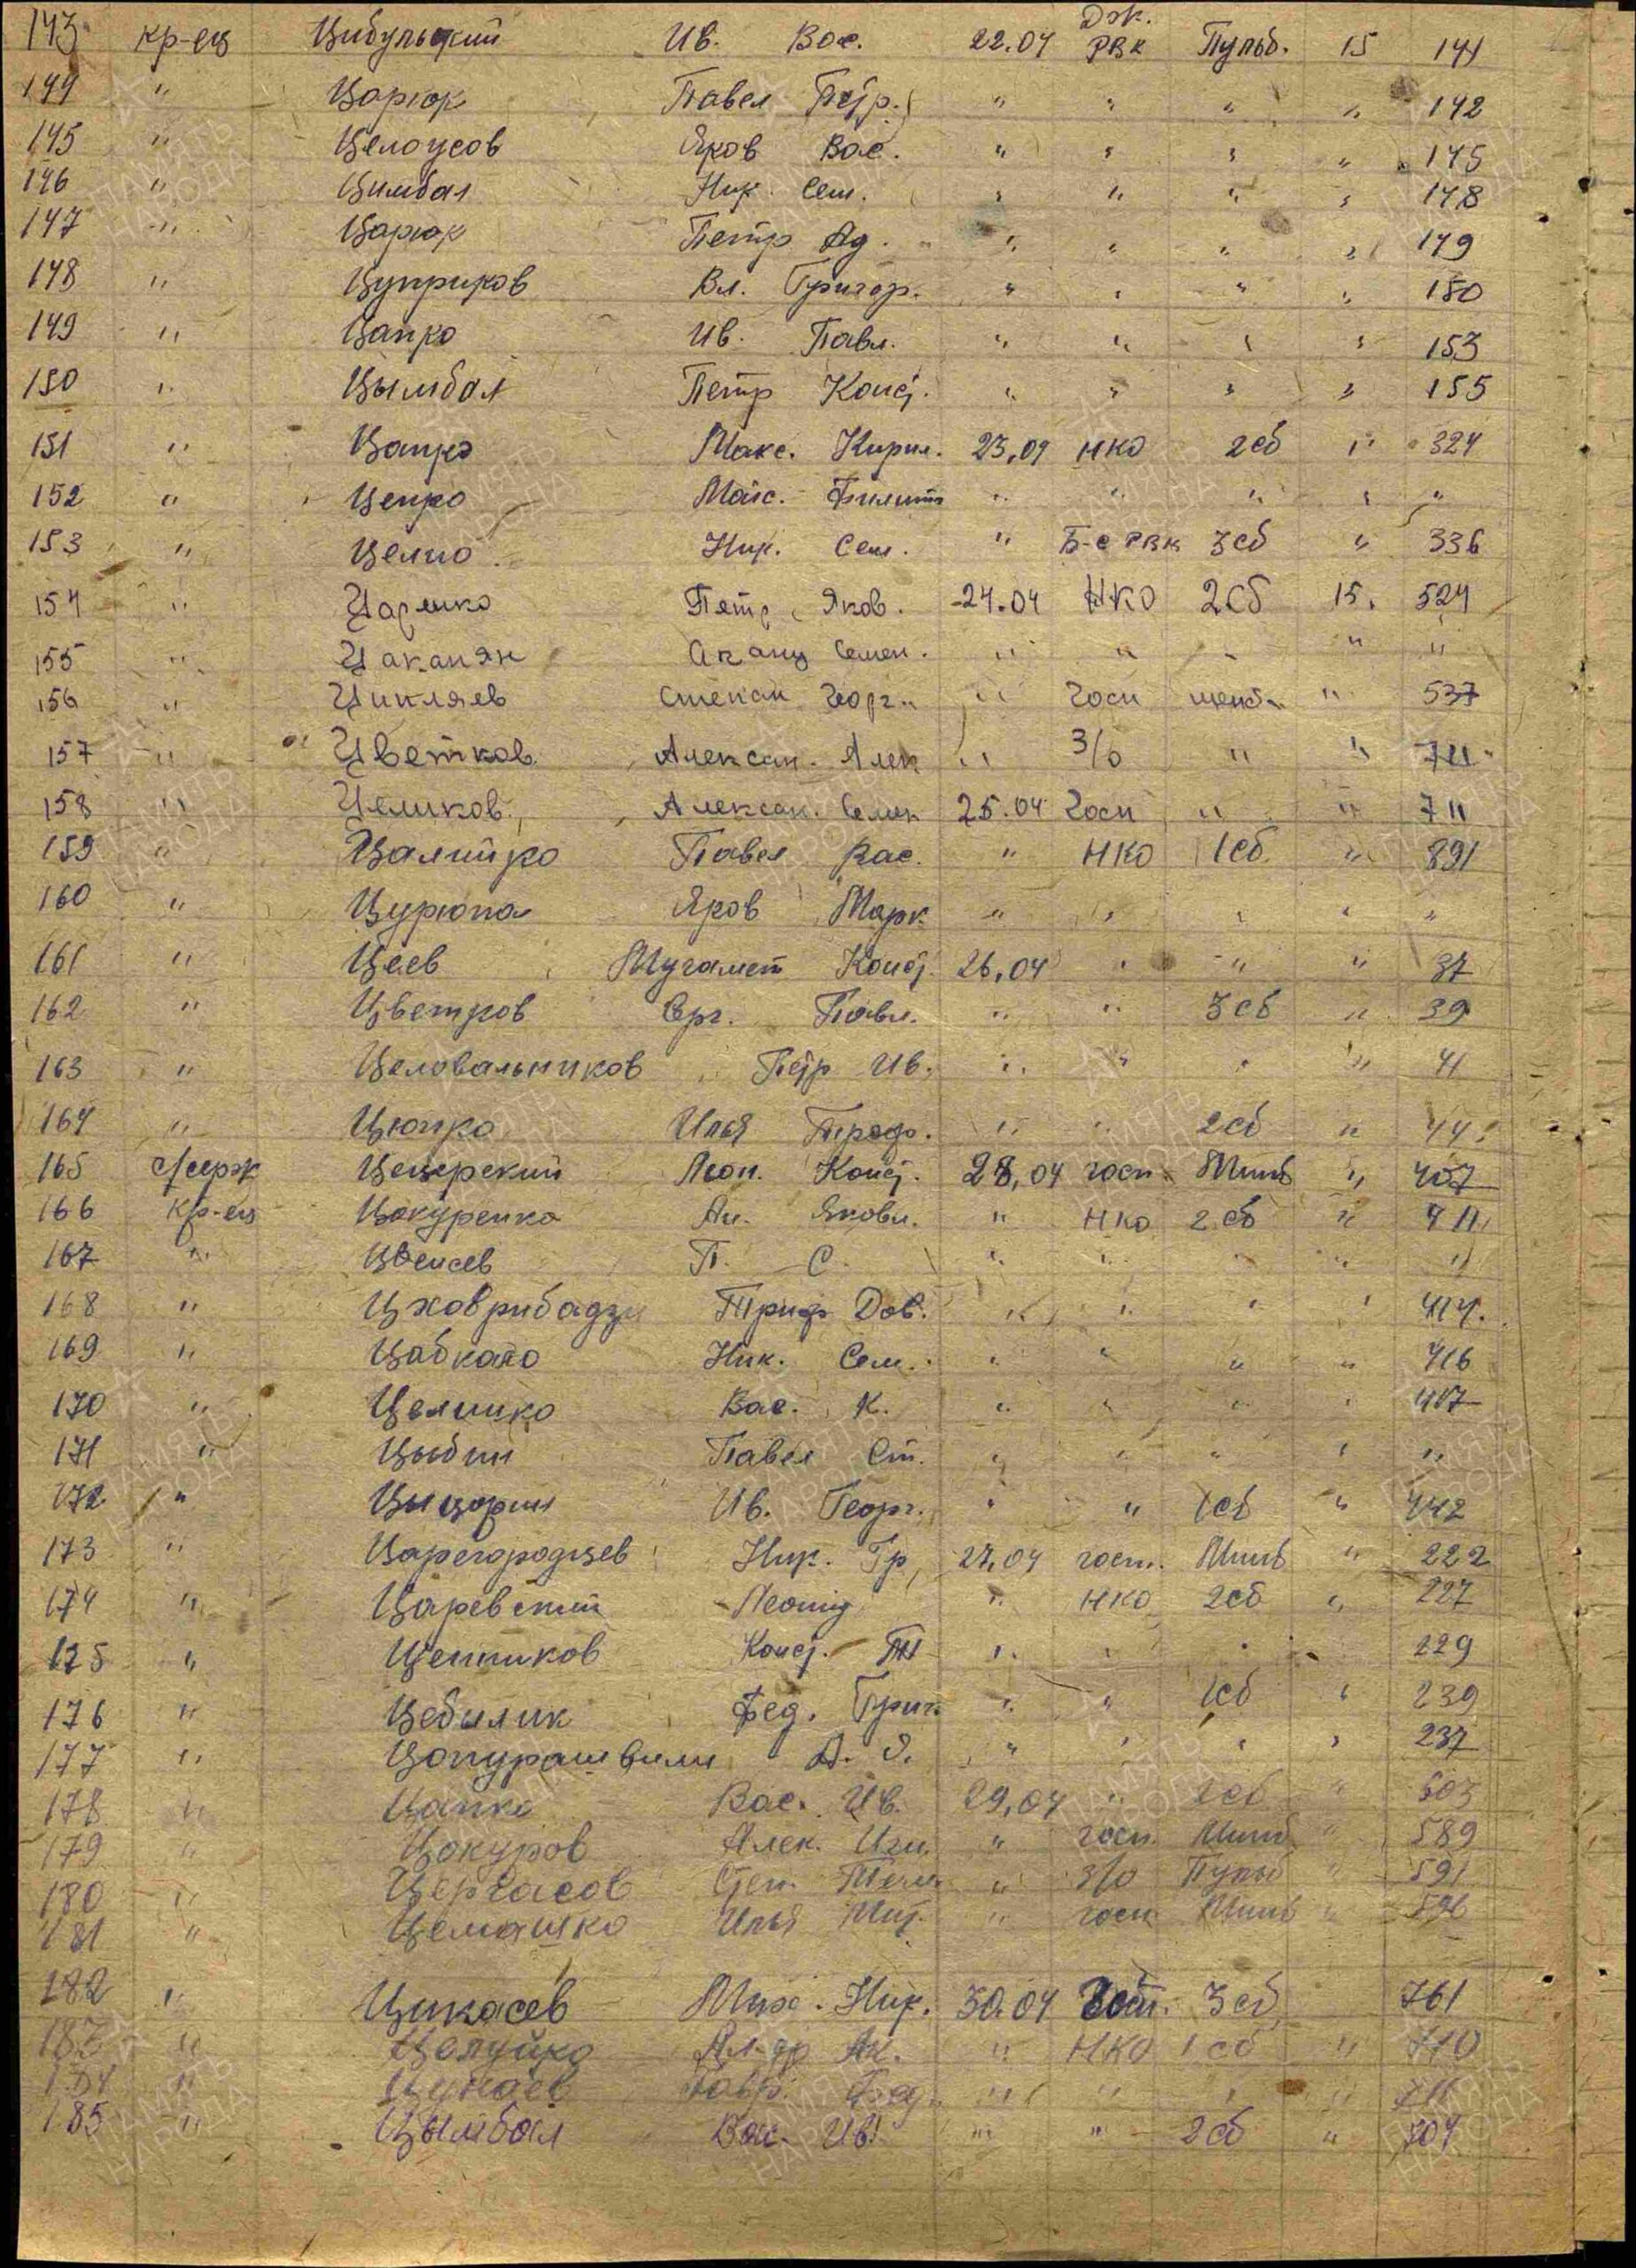 143 кр-ец Цибульский Ив. Вас. 22.04 Дзж. РВК Пульб. 15 141
144 " Царюк Павел Петр. " " " " 142
145 " Целоусов Яков Вас. " " " " 145
146 " Цимбал Ник. Сем. " " " " 148
147 " Царюк Петр Ад. " " " " 149
148 " Цуприков Вл. Григор. " " " " 150
149 " Цапко Ив. Павл. " " " " 153
150 " Цымбал Петр Конст. " " " " 155
151 " Цапко Макс. Кирил. 23.04 НКО 2сб " 324
152 " Цепко Филипп " " " " "
153 " Целио Ник. Сем. " Б-е РВК 3сб " 336
154 " Царенко Петр Яков. 24.04 НКО 2сб 15. 524
155 " Цаканян Акану Семен. " " " " "
156 " Цикляев Степан Георг. " Госп " 537
157 " Цветков Алексан. Алек " З/о " " 711
158 " Целиков Алексан. Семен 25.04 Госп " " 711
159 " Цалитко Павел Вас. " НКО 1сб " 891
160 " Цурюпа Яков Марк " " " " "
161 " Цеев Мугамет Конст. 26.04 " " " 37
162 " Цветков Серг. Павл. " " 3сб " 39
163 " Целовальников Петр Ив. " " " " 41
164 " Цюпко Илья Трофо. " " 2сб " 44
165 с/серж Цецерский Леон. Конст. 28.04 госп. Минб " 407
166 кр-ец Цокуренко Ан. Яковл. " НКО 2сб " 411
167 " П. С. " " " " "
168 " Цховрибадзе Триф Дав. " " " " 414.
169 " Цабкало Ник. Сем. " " " " 416
170 " Целишко Вас. К. " " " " 417
171 " Цыбин Павел Ст. " " " " "
172 " Цыцорин Ив. Георг. " " 1сб " 442
173 " Царегородцев Ник. Гр. 27.04 госп. Минб " 222
174 " Царевский Леонид " НКО 2сб " 227
175 " Цепников Конст. " " " " 229
176 " Цебылик Фед. Григ. " " 1сб " 239
177 " Цопурашвили Д. " " " " 237
178 " Цапко Вас. Ив. 29.04 " 2сб " 603
179 " Цокуров Алек. Игн. " госп. Минб " 589
180 " Церчасов Степ. " З/о Пульб " 591
181 " Цемашко Илья Мит. " госп Минб " 596
182 " Цикасев Мих. Ник. 30.04 Госп. 3сб 761
183 " Целуйко Ал-др Ак. " НКО 1сб " 710
184 " Цунаев Гавр. Фед. " " " " 711
185 " Цымбал Вас. Ив. " " 2сб " 704